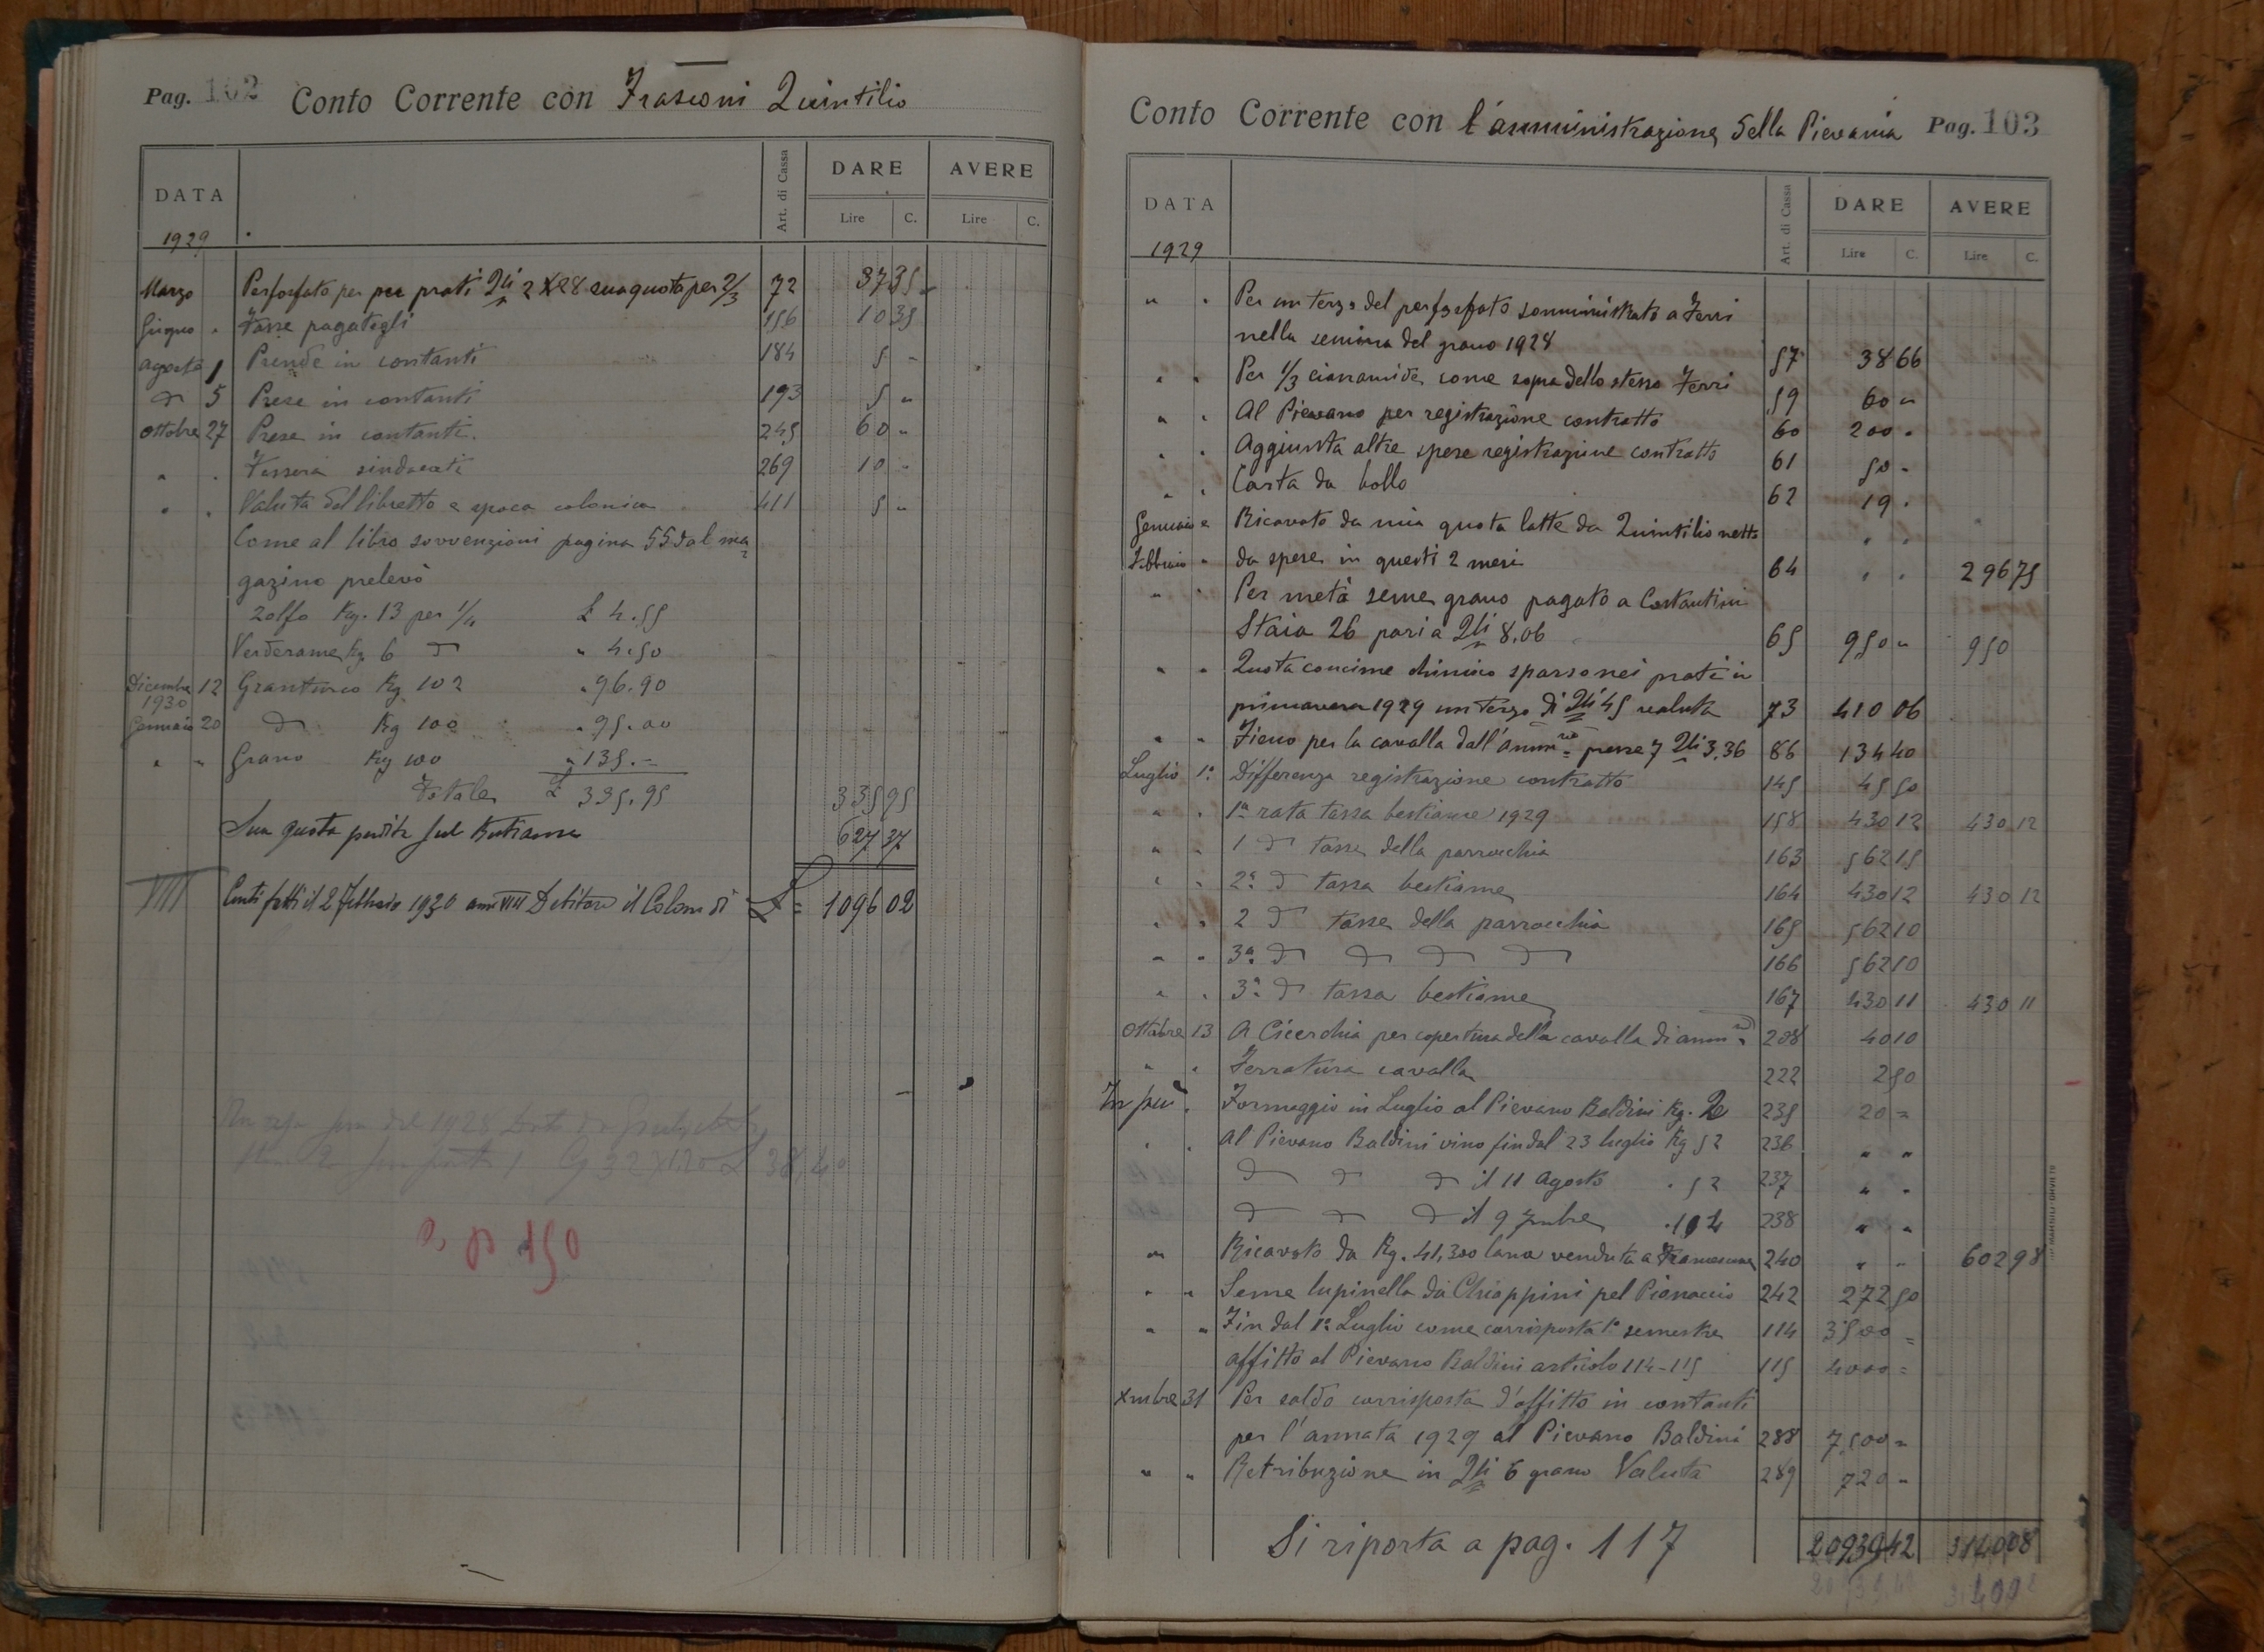 Pag. 102 Conto Corrente con Frasconi Quintilio
DATA Art. di Cassa DARE AVERE
Lire C. Lire C.
1929
Marzo Perfosfato per per prati Qli 2 X 28 sua quota per 2/3 72 37 35
Giugno " Tasse pagategli 156 10 35
Agosto 1 Prende in contanti 184 5 -
D 5 Prese in contanti 193 5 "
Ottobre 27 Prese in contanti. 245 60 "
" " Tessera sindacati 269 10 "
" " Valuta del libretto e epoca colonica 411 5 "
Come al libro sovvenzioni pagina 55 dal ma=
gazino prelevò
Zolfo Kg. 13 per 1/4 £ 4.55
Verderame Kg 6 D " 4.50
Dicembre 12 Granturco Kg 102 " 96.90
1930
Gennaio 20 D Kg 100 " 95.00
" " Grano Kg 100 " 135.-
Totale £ 335.95 335 95
Sua quota perdita sul Bestiame 627 37
VIII Conti fatti il 2 Febbraio 1930 anno VIII Debitore il Colono di £ = 1096 02
del 1928
38,40
p 150
Conto Corrente con l'amministrazione della Pievania Pag. 103
DATA Art. di Cassa DARE AVERE
Lire C. Lire C.
1929
" " Per un terzo del perfosfato somministrato a Ferri
nella semina del grano 1928 57 38 66
" " Per 1/3 cianamide come sopra dello stesso Ferri 59 60 "
" " Al Pievano per registrazione contratto 60 200 "
" " Aggiunta altre spese registrazione contratto 61 50 -
" " Carta da bollo 62 19 "
Gennaio e Ricavato da mia quota latte da Quintilio netto " "
Febbraio " da spese in questi 2 mesi 64 " " 296 75
" " Per metà seme grano pagato a Costantini
Staia 26 pari a Qli 8.06 65 950 " 950
" " Quota concime chimico sparso nei prati in
primavera 1929 un terzo di Qli 45 valuta 73 410 06
" " Fieno per la cavalla dall'amm.ne prese 7 Qli 3.36 86 134 40
Luglio 1° Differenza registrazione contratto 145 45 50
" " 1a rata tassa bestiame 1929 158 430 12 430 12
" " 1 D tasse della parrocchia 163 562 15
" " 2a D tassa bestiame 164 430 12 430 12
" " 2 D tasse della parrocchia 165 562 10
" " 3a D D D D 166 562 10
" " 3a D tassa bestiame 167 430 11 430 11
Ottobre 13 A Cicerchia per copertura della cavalla di amm. 208 40 10
" " Ferratura cavalla 222 2 50
In più " Formaggio in Luglio al Pievano Baldini Kg. 2 235 20 =
" " Al Pievano Baldini vino fin dal 23 luglio Kg 52 236 " "
D D D il 11 Agosto " 52 237 " "
D D D il 9 7mbre " 102 238 " "
" Ricavato da Kg. 41,300 lana venduta a 240 " " 602 98
" " Seme lupinella da Chiappini pel Pianaccio 242 272 50
" " Fin dal 1° Luglio come corrisposta 1° semestre 114 3500 =
affitto al Pievano Baldini articolo 114-115 115 4000 =
Xmbre 31 Per saldo corrisposta d'affitto in contanti
per l'annata 1929 al Pievano Baldini 288 7500 =
" " Retribuzione in Qli 6 grano Valuta 289 720 -
Si riporta a pag. 117 20939 42 3140 08